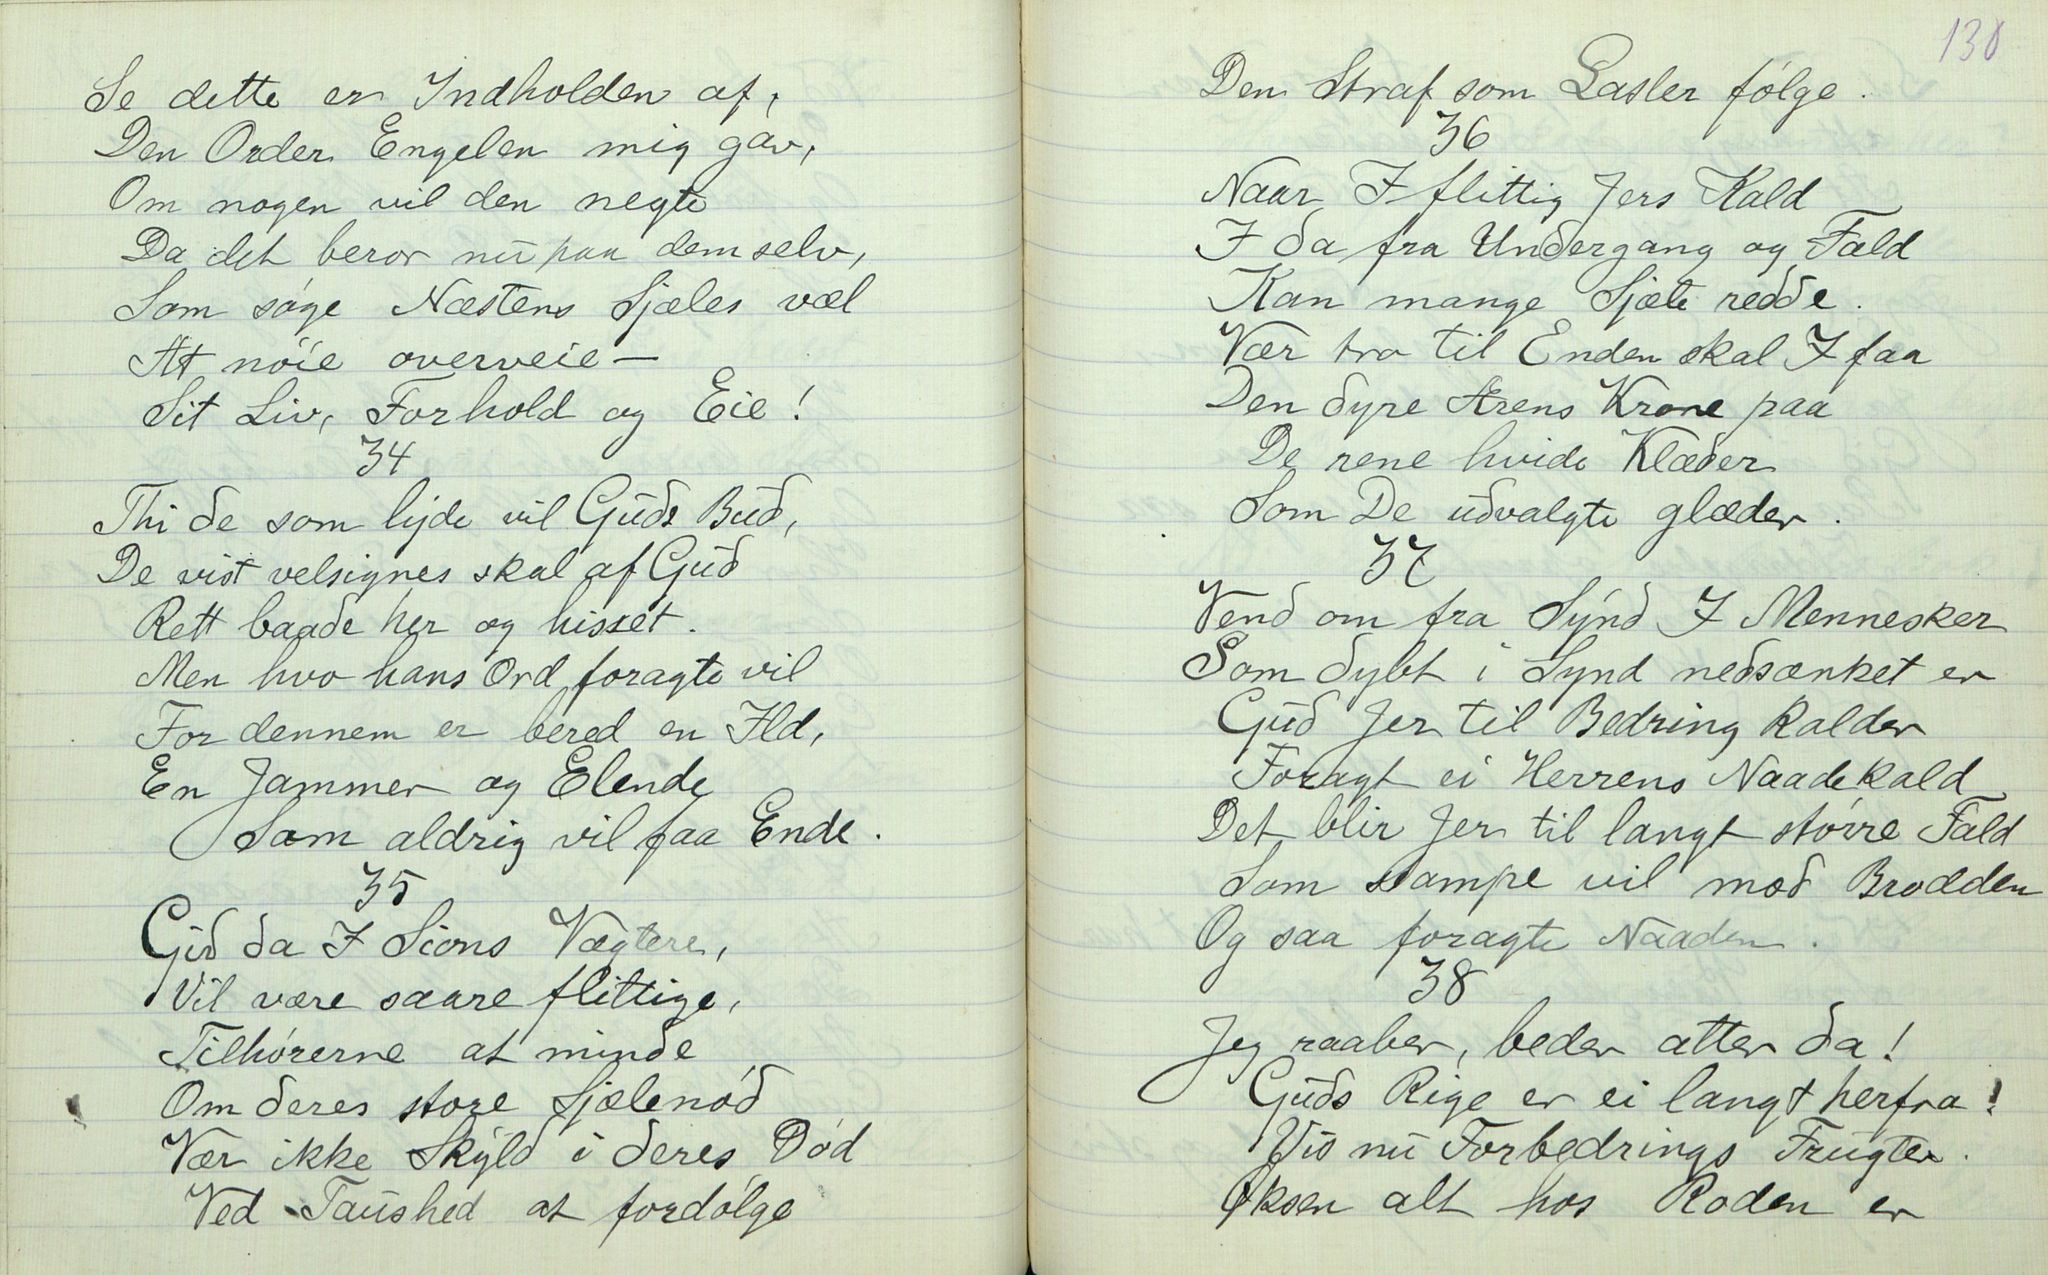 Se dette er Indholden af,
Den Order Engelen mig gav,
Om nogen vil den negte
Da det beror nu paa dem selv,
Som søge Næstens Sjæles væl
At nøie overveie —
Sit Liv, Forhold og Eie!
34
Thi de som lyde vil Guds Bud,
De vist velsignes skal af Gud
Rett baade her og hisset.
Men hvo hans Ord foragte vil
For dennem er bered en Ild,
En Jammer og Elende
Som aldrig vil faa Ende.
35
Gid da I Sions Vægtere,
Vil være saare flittige,
Tilhørerne at minde
Om deres store Sjælenød
Vær ikke Skyld i deres Død
Ved Taushed at fordølge
138
Den Straf som Laster følge.
36
Naar I flittig Jers Kald
I da fra Undergang og Fald
Kan mange Sjæle redde.
Vær tro til Enden skal I faa
Den dyre Ærens Krone paa
De rene hvide Klæder
Som De udvalgte glæder.
37
Vend om fra Synd I Mennesker
Som dybt i Synd nedsænket er
Gud Jer til Bedring kalder
Foragt ei Herrens Naadekald
Det blir Jer til langt større Fald
Som stampe vil mod Brodden
Og saa foragte Naaden.
38
Jeg raaber, beder atter da!
Guds Rige er ei langt herfra!
Vis nu Forbedrings Frugter.
Øksen alt hos Roden er